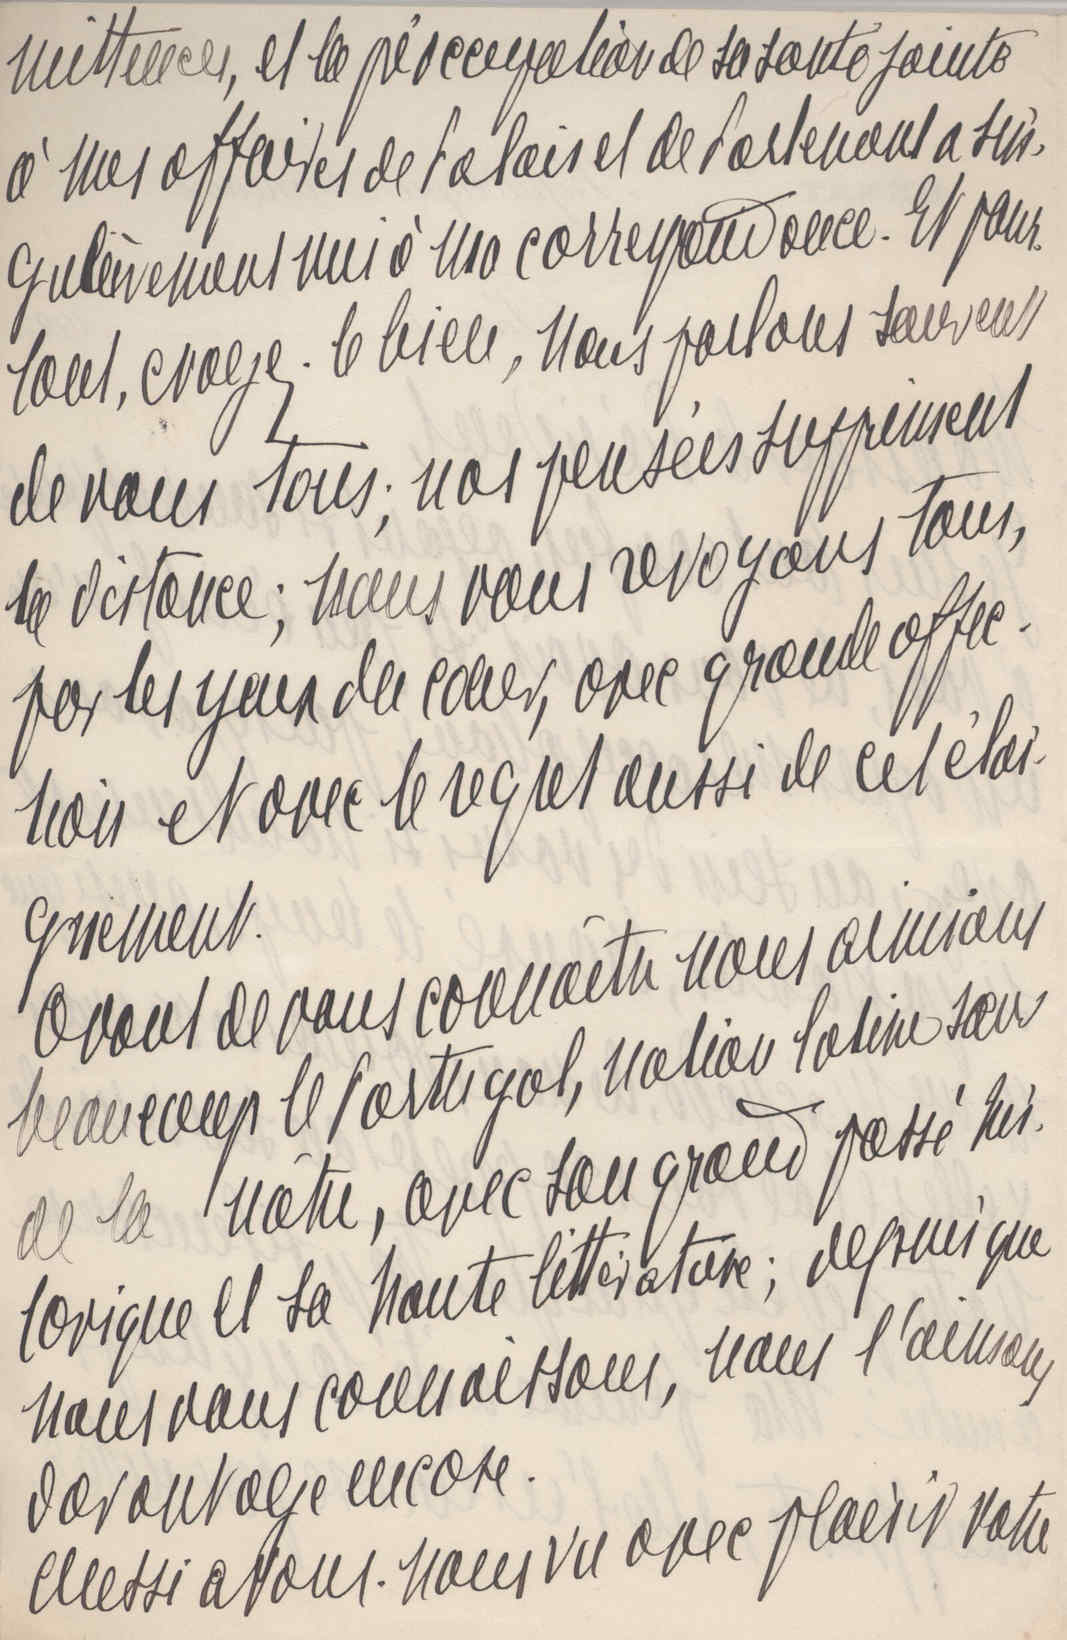 mittences, et la préoccupation de sa santé jointe
à mes affaires de Palais et de Parlement a sin-
gulièrement nui à ma correspondance. Et pour-
tant, croyez-le bien, nous parlons souvent
de vous tous; nos pensées suppriment
la distance; nous vous revoyons tous,
par les yeux du cœur, avec grande affec-
tion et avec le regret aussi de cet éloi-
gnement.
Avant de vous connaître nous aimions
beaucoup le Portugal, nation latine sœur
de la nôtre, avec son grand passé his-
torique et sa haute littérature; depuis que
nous vous connaissons, nous l'aimons
davantage encore.
Aussi avons-nous vu avec plaisir votre